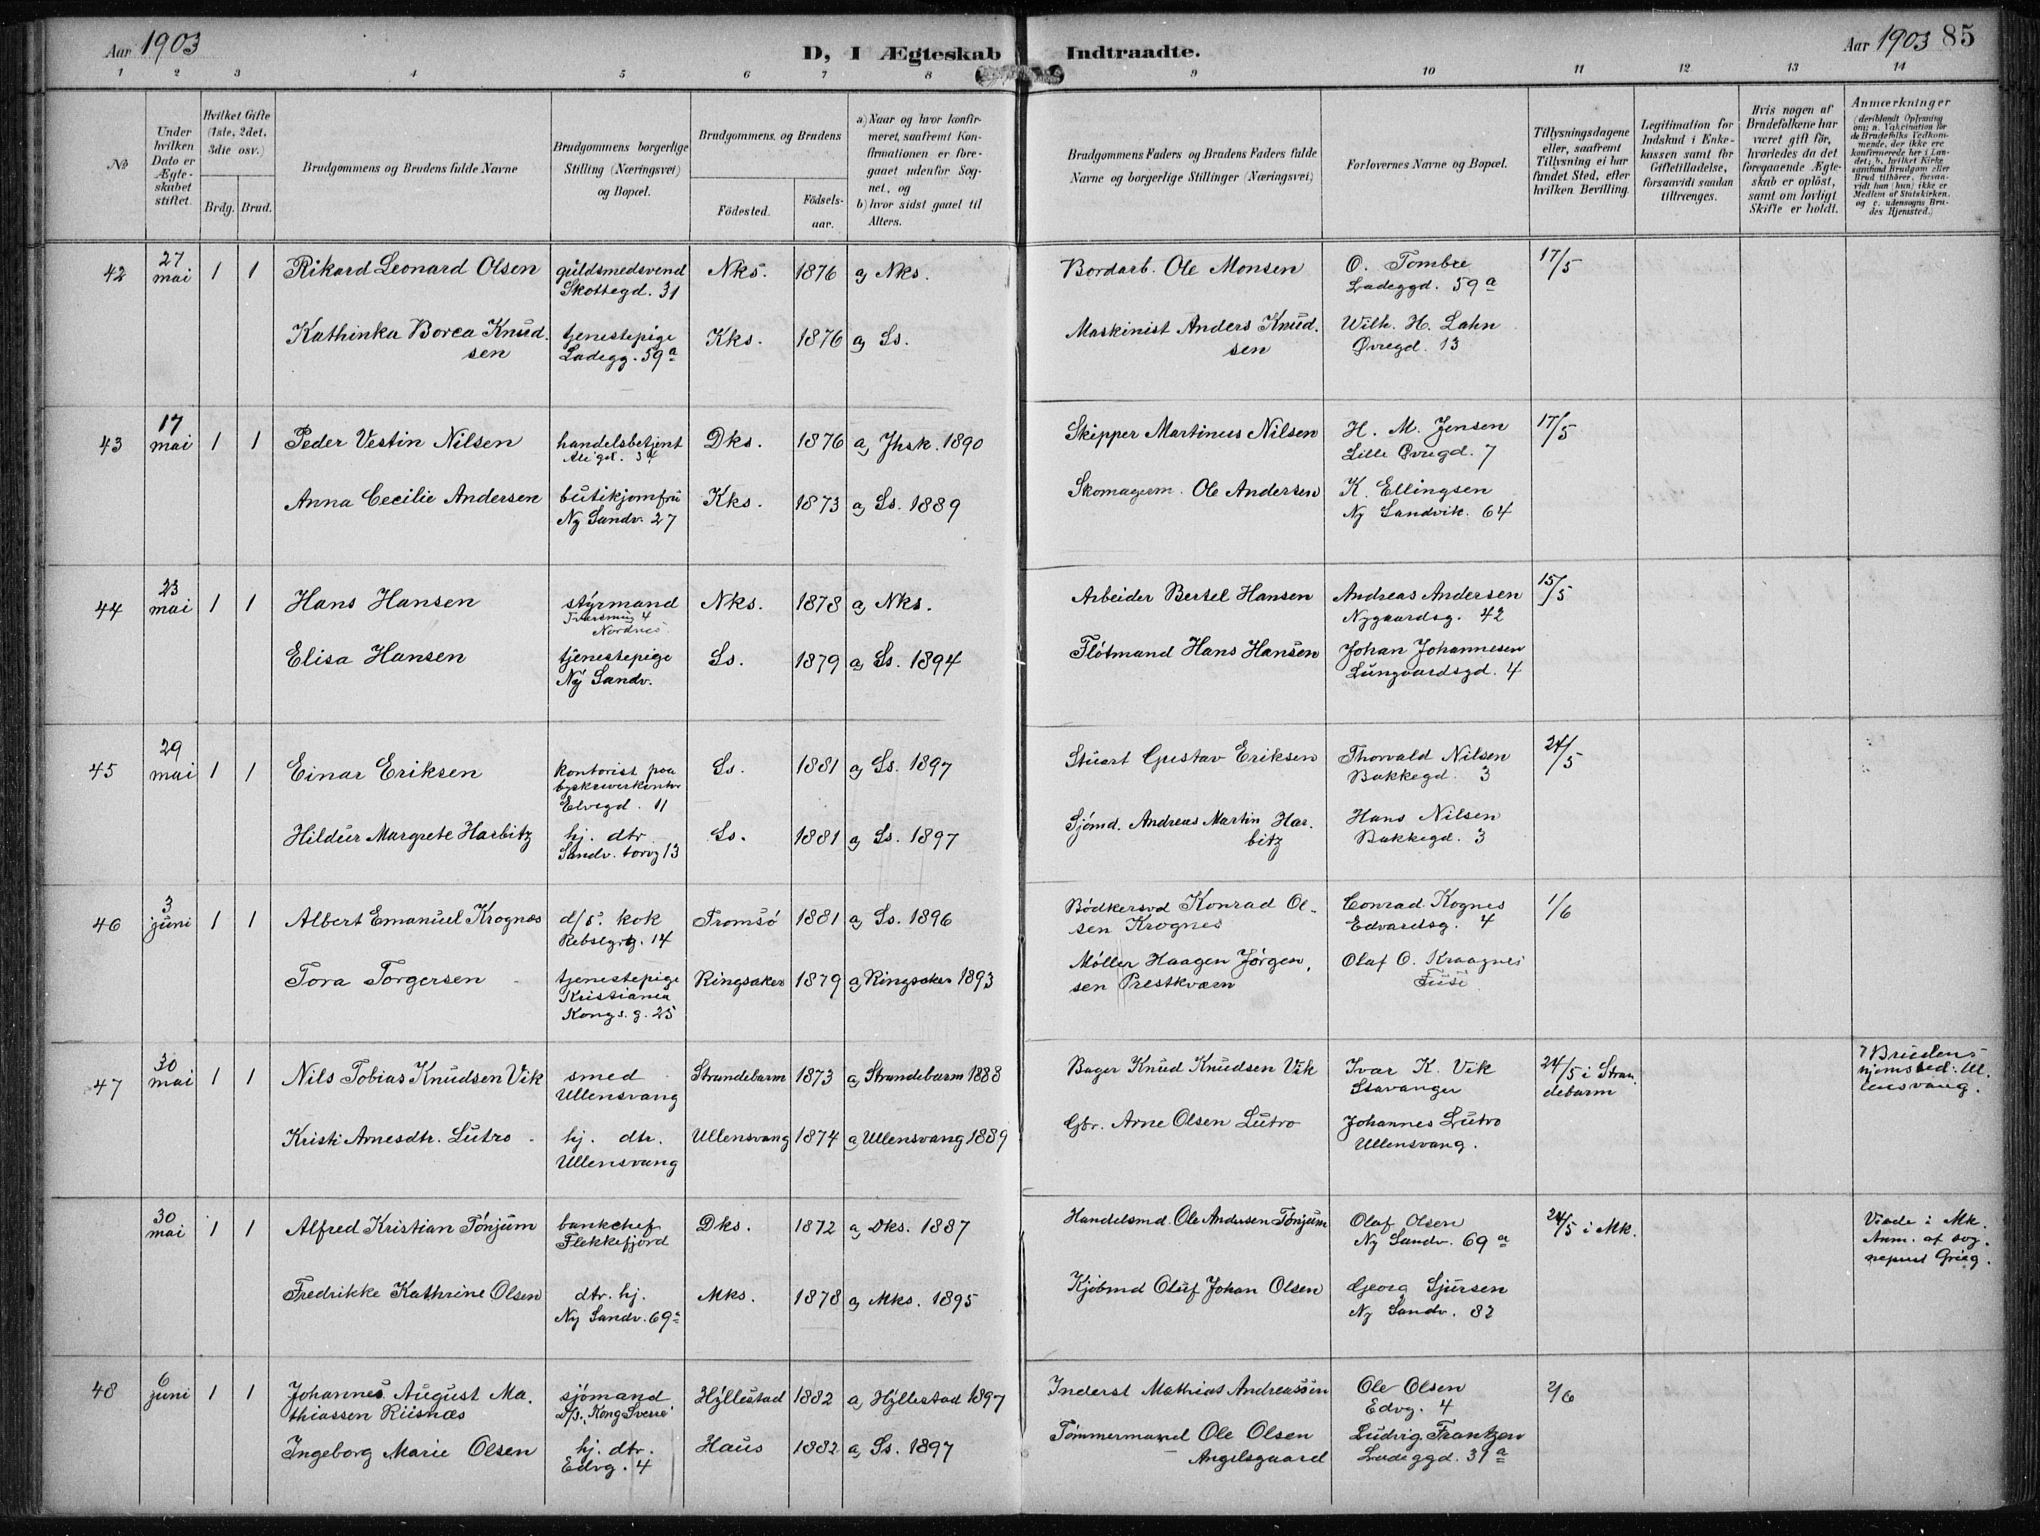 Aar 1903
D, I Ægteskab Indtraadte.
Aar 1903 85
1 2 3 4 5 6 7 8 9 10 11 12 13 14
No
Under hvilken Dato er Ægteskabet stiftet.
Hvilket Gifte (1ste, 2det, 3die osv.)
Brdg. Brud.
Brudgommens og Brudens fulde Navne
Brudgommens borgerlige Stilling (Næringsvei) og Bopæl.
Brudgommens og Brudens
Födested.
Födselsaar.
a) Naar og hvor konfirmeret, saafremt Konfirmationen er foregaaet udenfor Sognet, og
b) hvor sidst gaaet til Alters.
Brudgommens Faders og Brudens Faders fulde Navne og borgerlige Stillinger (Næringsvei)
Forlovernes Navne og Bopæl.
Tillysningsdagene eller, saafremt Tillysning ei har fundet Sted, efter hvilken Bevilling.
Legitimation for Indskud i Enkekassen samt for Giftetilladelse, forsaavidt saadan tiltrænges.
Hvis nogen af Brudefolkene har været gift för, hvorledes da det foregaaende Ægteskab er oplöst, samt om lovligt Skifte er holdt.
Anmærkninger
(deriblandt Oplysning om: a. Vakcination for de Brudefolks Vedkommende, der ikke ere konfirmerede her i Landet; b. hvilket Kirkesamfund Brudgom eller Brud tilhörer, forsaavidt han (hun) ikke er Medlem af Statskirken, og c. udensogns Brudes Hjemsted.)
42 27 mai 1 1 Rikard Leonard Olsen guldsmedsvend Skottegd. 31 Nks. 1876 a) Nks. Bordarb. Ole Monsen O. Tombre Ladeggd. 59a 17/5
Kathinka Borea Knudsen tjenestepige Ladegg. 59a Kks. 1876 a) Ss. Maskinist Anders Knudsen Wilh. H. Lahn Øvregd. 13
43 17 mai 1 1 Peder Vestin Nilsen handelsbetjent Dks. 1876 a) Jhsk. 1890 Skipper Martinus Nilsen H. M. Jensen Lille Øvregd. 7 17/5
Anna Cecilie Andersen butikjomfru Ny Sandv. 27 Kks. 1873 a) Ss. 1889 Skomagerm. Ole Andersen K. Ellingsen Ny Sandvik. 64
44 23 mai 1 1 Hans Hansen styrmand Nordnes Nks. 1878 a) Nks. Arbeider Bertel Hansen Andreas Andersen Nygaardsg. 42 15/5
Elisa Hansen tjenestepige Ny Sandv. Ss. 1879 a) Ss. 1894 Flötmand Hans Hansen Johan Johannesen Lungaardsgd. 4
45 29 mai 1 1 Einar Eriksen kontorist paa byskriverkontor Elvegd. 11 Ss. 1881 a) Ss. 1897 Stuart Gustav Eriksen Thorvald Nilsen Bakkegd. 3 24/5
Hildur Margrete Harbitz hj. dtr. Sandv. torvg 13 Ss. 1881 a) Ss. 1897 Sjömd. Andreas Martin Harbitz Hans Nilsen Bakkegd. 3
46 3 juni 1 1 Albert Emanuel Krognæs d/s. kok Rebslgrg. 14 Tromsö 1881 a) Ss. 1896 Bödkersvd Konrad Olsen Krognes Conrad Kognes Edvardsg. 4 1/6
Tora Torgersen tjenestepige Kristiania Kongs. g. 25 Ringsaker 1879 a) Ringsaker 1893 Møller Haagen Jørgensen Prestkværn Olaf O. Kraagnes Fuse
47 30 mai 1 1 Nils Tobias Knudsen Vik smed Ullensvang Strandebarm 1873 a) Strandebarm 1888 Bager Knud Knudsen Vik Ivar K. Vik Stavanger 24/5 i Strandebarm Brudens hjemsted: Ullensvang.
Kristi Arnesdtr. Lutro hj. dtr. Ullensvang Ullensvang 1874 a) Ullensvang 1889 Gbr. Arne Olsen Lutro Johannes Lutro Ullensvang.
30 mai 1 1 Alfred Kristian Tönjum bankchef Flekkefjord Dks. 1872 a) Dks. 1887 Handelsmd. Ole Andersen Tönjum Olaf Olsen Ny Sandv. 69a 24/5 i Mk. Viede i Mk. Anm. af sognepræst Grieg.
Fredrikke Kathrine Olsen dtr. hj. Ny Sandv. 69a Mks. 1878 a) Mks. 1895 Kjöbmd Oluf Johan Olsen Georg Sjursen Ny Sandv. 82
48 6 juni 1 1 Johannes August Mathiassen Riisnæs sjömand D/S. "Kong Sverre" Hyllestad 1882 a) Hyllestad 1897 Inderst Mathias Andreassen Ole Olsen Edvg. 4 2/6
Ingeborg Marie Olsen hj. dtr. Edvg. 4 Haus 1882 a) Ss. 1897 Tömmermand Ole Olsen Angelsgaard Ludvig Frantzen Ladeggd. 31a